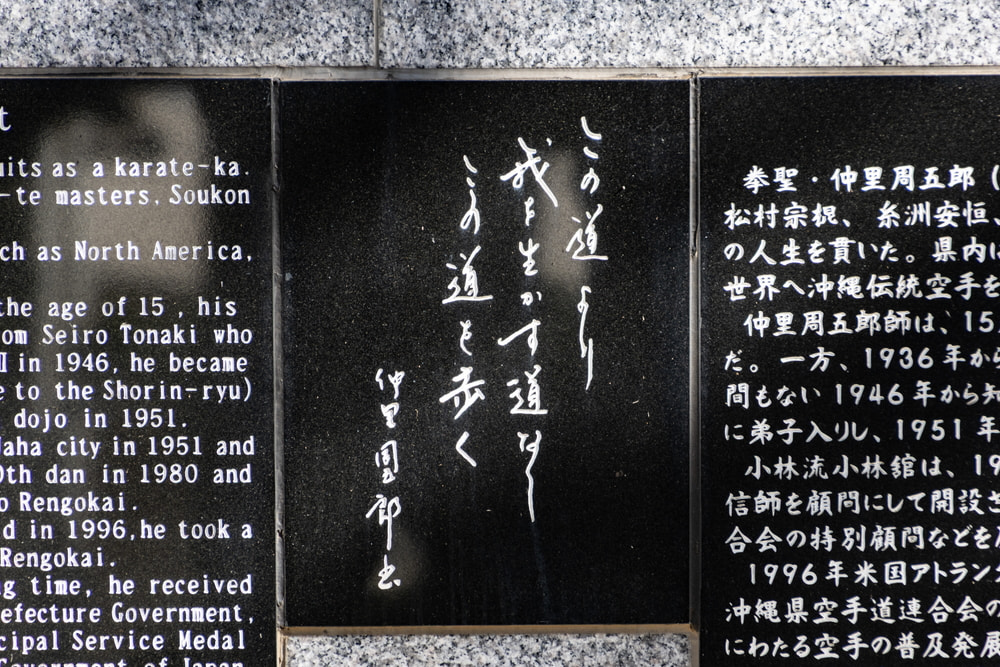 t
uits as a karate-ka.
-te masters, Soukon
ch as North America,
the age of 15 , his
om Seiro Tonaki who
in 1946, he became
e to the Shorin-ryu)
dojo in 1951.
aha city in 1951 and
0th dan in 1980 and
o Rengokai.
d in 1996,he took a
Rengokai.
g time, he received
efecture Government,
cipal Service Medal
Government of Japan
この道より
我を生かす道なし
この道を歩く
仲里周五郎書
拳聖・仲里周五郎（
松村宗棍、糸洲安恒、
の人生を貫いた。県内
世界へ沖縄伝統空手を
仲里周五郎師は、15
だ。一方、1936年から
間もない1946年から知
に弟子入りし、1951年
小林流小林舘は、19
信師を顧問にして開設さ
合会の特別顧問などを
1996年米国アトランタ
沖縄県空手道連合会の
にわたる空手の普及発展